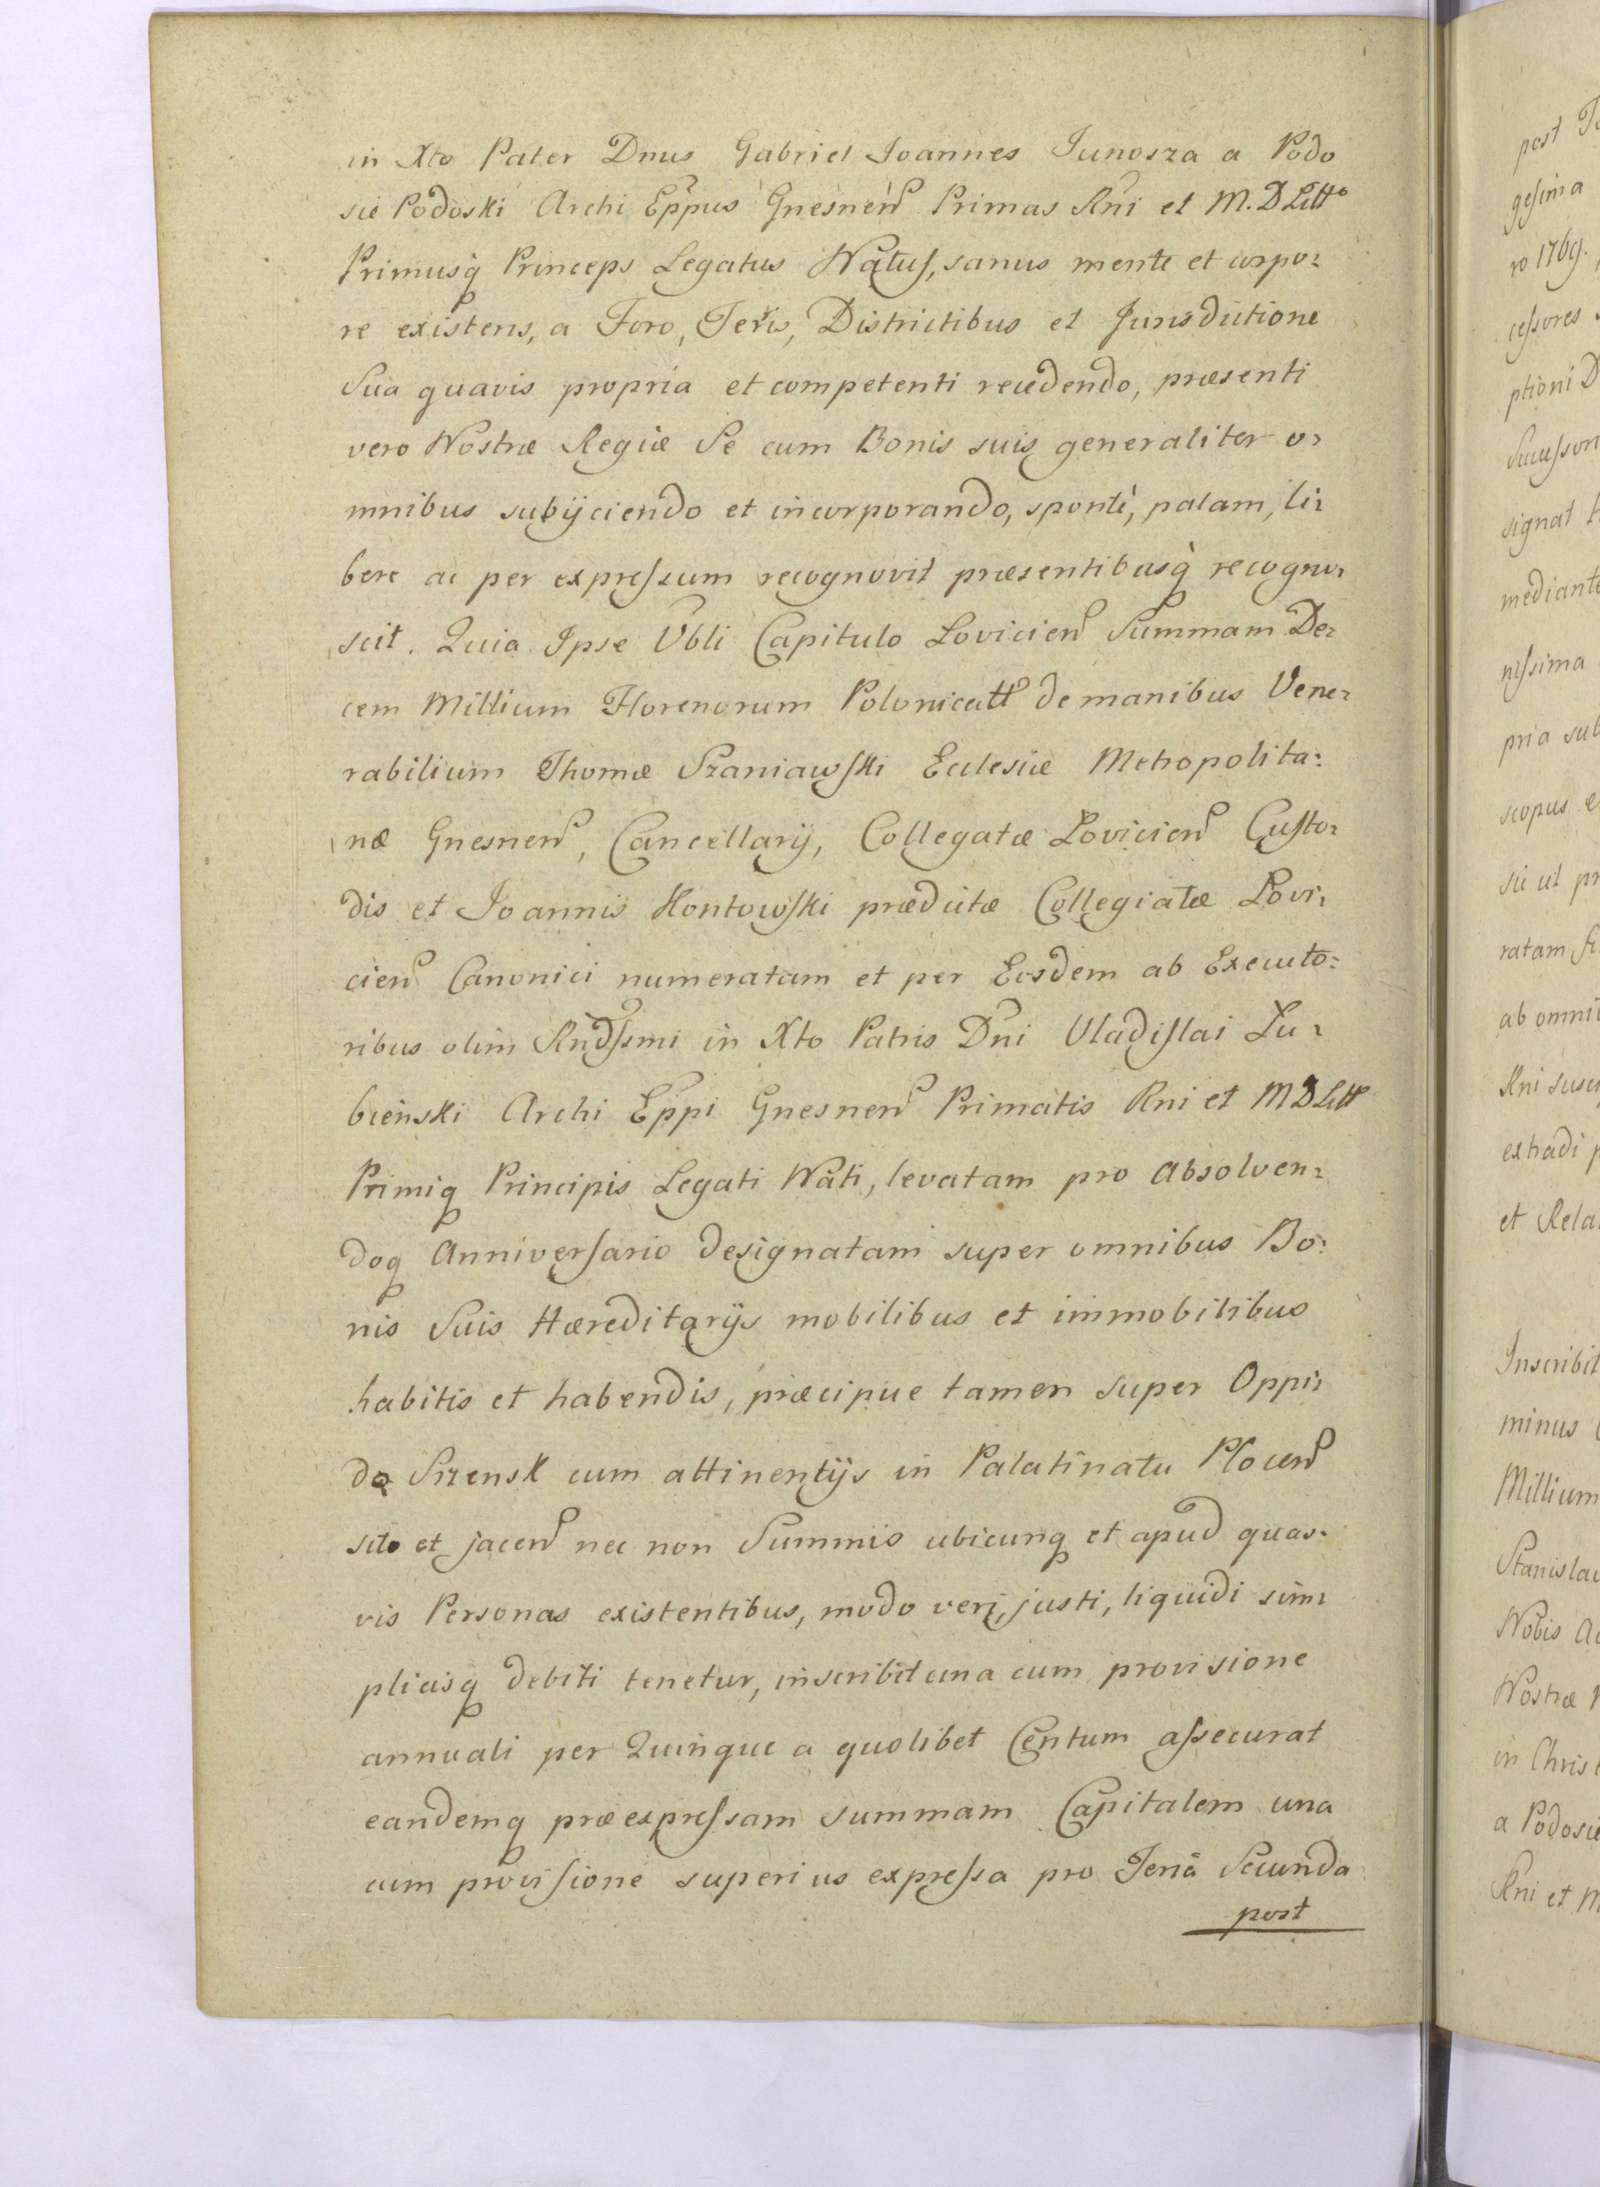 in Xto Pater Dnus Gabriel Joannes Junosza a Podo
sie Podoski Archi Eppus Gnesnen Primas Rni et M. D Litt
Primusq Princeps Legatus Natus, sanus mente et corpo:
re existens, a Foro, Terris, Districtibus et Jurisdictione
Sua quavis propria et competenti recedendo, præsenti
vero Nostræ Regiæ Se cum Bonis suis generaliter o:
mnibus subijciendo et incorporando, spontè, palam, li:
bere ac per expressum recognovit præsentibusq recogno:
scit. Quia Ipse Vbli Capitulo Lovicien Summam De:
cem Millium Florenorum Polonicall de manibus Vene:
rabilium Thomæ Szaniawski Ecclesiæ Metropolita:
næ Gnesnen, Cancellarij, Collegatæ Lovicien Custo:
dis et Joannis Kontowski prædictæ Collegiatæ Lovi:
cien Canonici numeratam et per Eosdem ab Executo:
ribus olim Rndssmi in Xto Patris Dni Vladislai Lu:
bieński Archi Eppi Gnesnen Primatis Rni et M D Litt
Primiq Principis Legati Nati, levatam pro absolven:
doq Anniversario designatam super omnibus Bo:
nis Suis Hæreditarijs mobilibus et immobilibus
habitis et habendis, præcipue tamen super Oppi:
do Srzensk cum attinentijs in Palatinatu Plocen
sito et jacen nec non Summis ubicunq et apud quas:
vis Personas existentibus, modo veri, justi, liquidi sim:
plicisq debiti tenetur, inscribit una cum provisione
annuali per Quinque a quolibet Centum assecurat
eandemq præexpressam summam Capitalem una
cum provisione superius expressa pro Feria Secunda
post
post
gesima
ro 1769.
cessores
ptioni D
Successori
signat
mediante
nissima
pria sub
scopus e
sie ut pr
ratam
ab omni
Rni susce
extradi p
et Rela
Inscribit
minus
Millium
Stanislau
Nobis Ac
Nostræ
in Christ
a Podosie
Rni et M